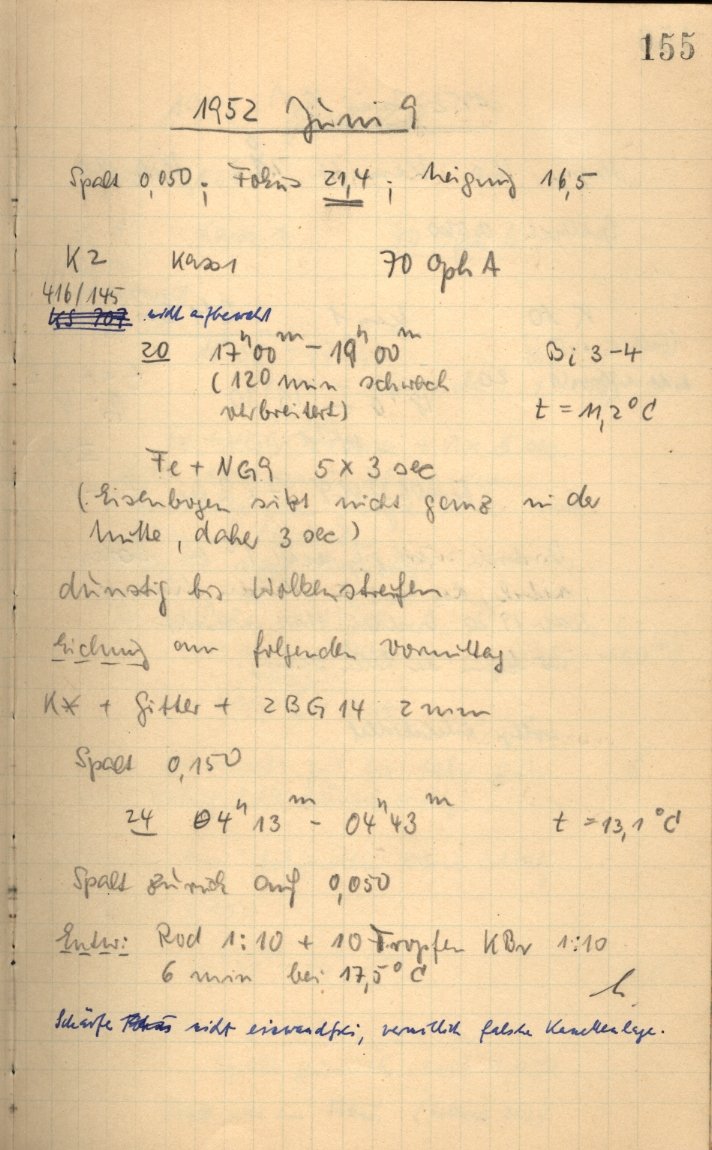 155
1952 Juni 9
Spalt 0,050; Fokus 21,4; Neigung 16,5
K2 Kass1 70 Oph A
416/145
KS 707 nicht aufbewahrt
20 17ʰ00ᵐ – 19ʰ00ᵐ Bi 3-4
(120 min schwach
verbreitert) t = 11,2°C
Fe + NG9 5 x 3 sec
(Eisenbogen sitzt nicht ganz in der
Mitte, daher 3 sec)
dunstig bis Wolkenstreifen
Eichung am folgenden Vormittag
K + Gitter + 2BG14 2mm
Spalt 0,150
24 04ʰ13ᵐ – 04ʰ43ᵐ t = 13,1°C
Spalt zurück auf 0,050
Entw: Rod 1:10 + 10 Tropfen KBr 1:10
6 min bei 17,5°C
Schärfe nicht einwandfrei, vermutlich falsche Kassettenlage.